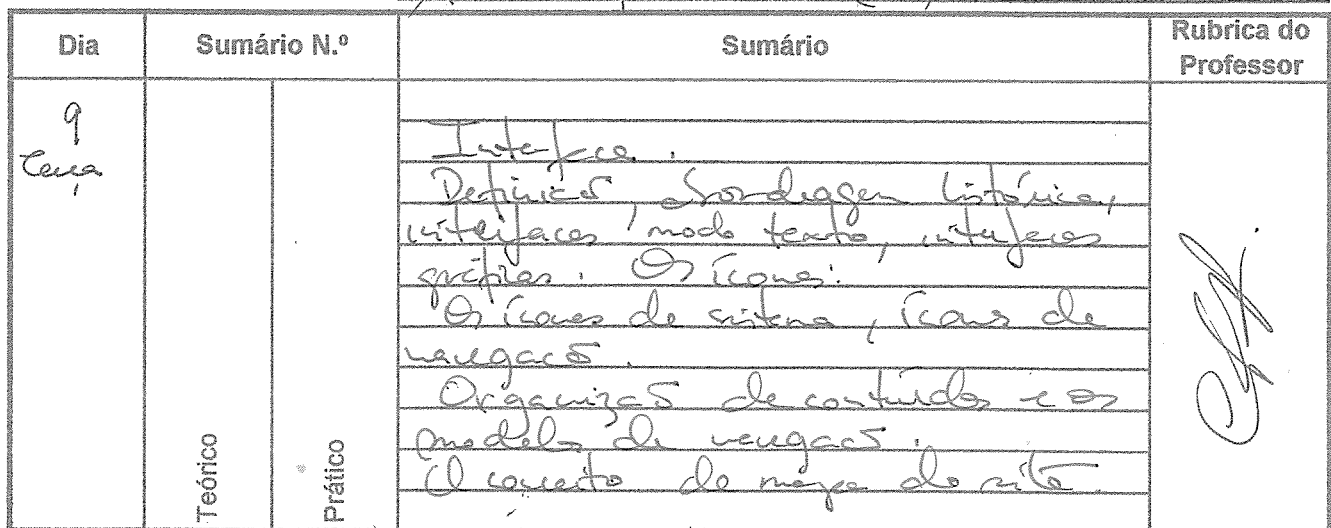 Dia Sumário N.º Sumário Rubrica do Professor
9
Terça
Teórico
Prático
Interface.
Definição, abordagem histórica,
interfaces modo texto, interfaces
gráficas. Os ícones.
Os ícones de sistema, ícones de
navegação.
Organização de conteúdos e os
modelos de navegação.
O conceito do mapa do site.